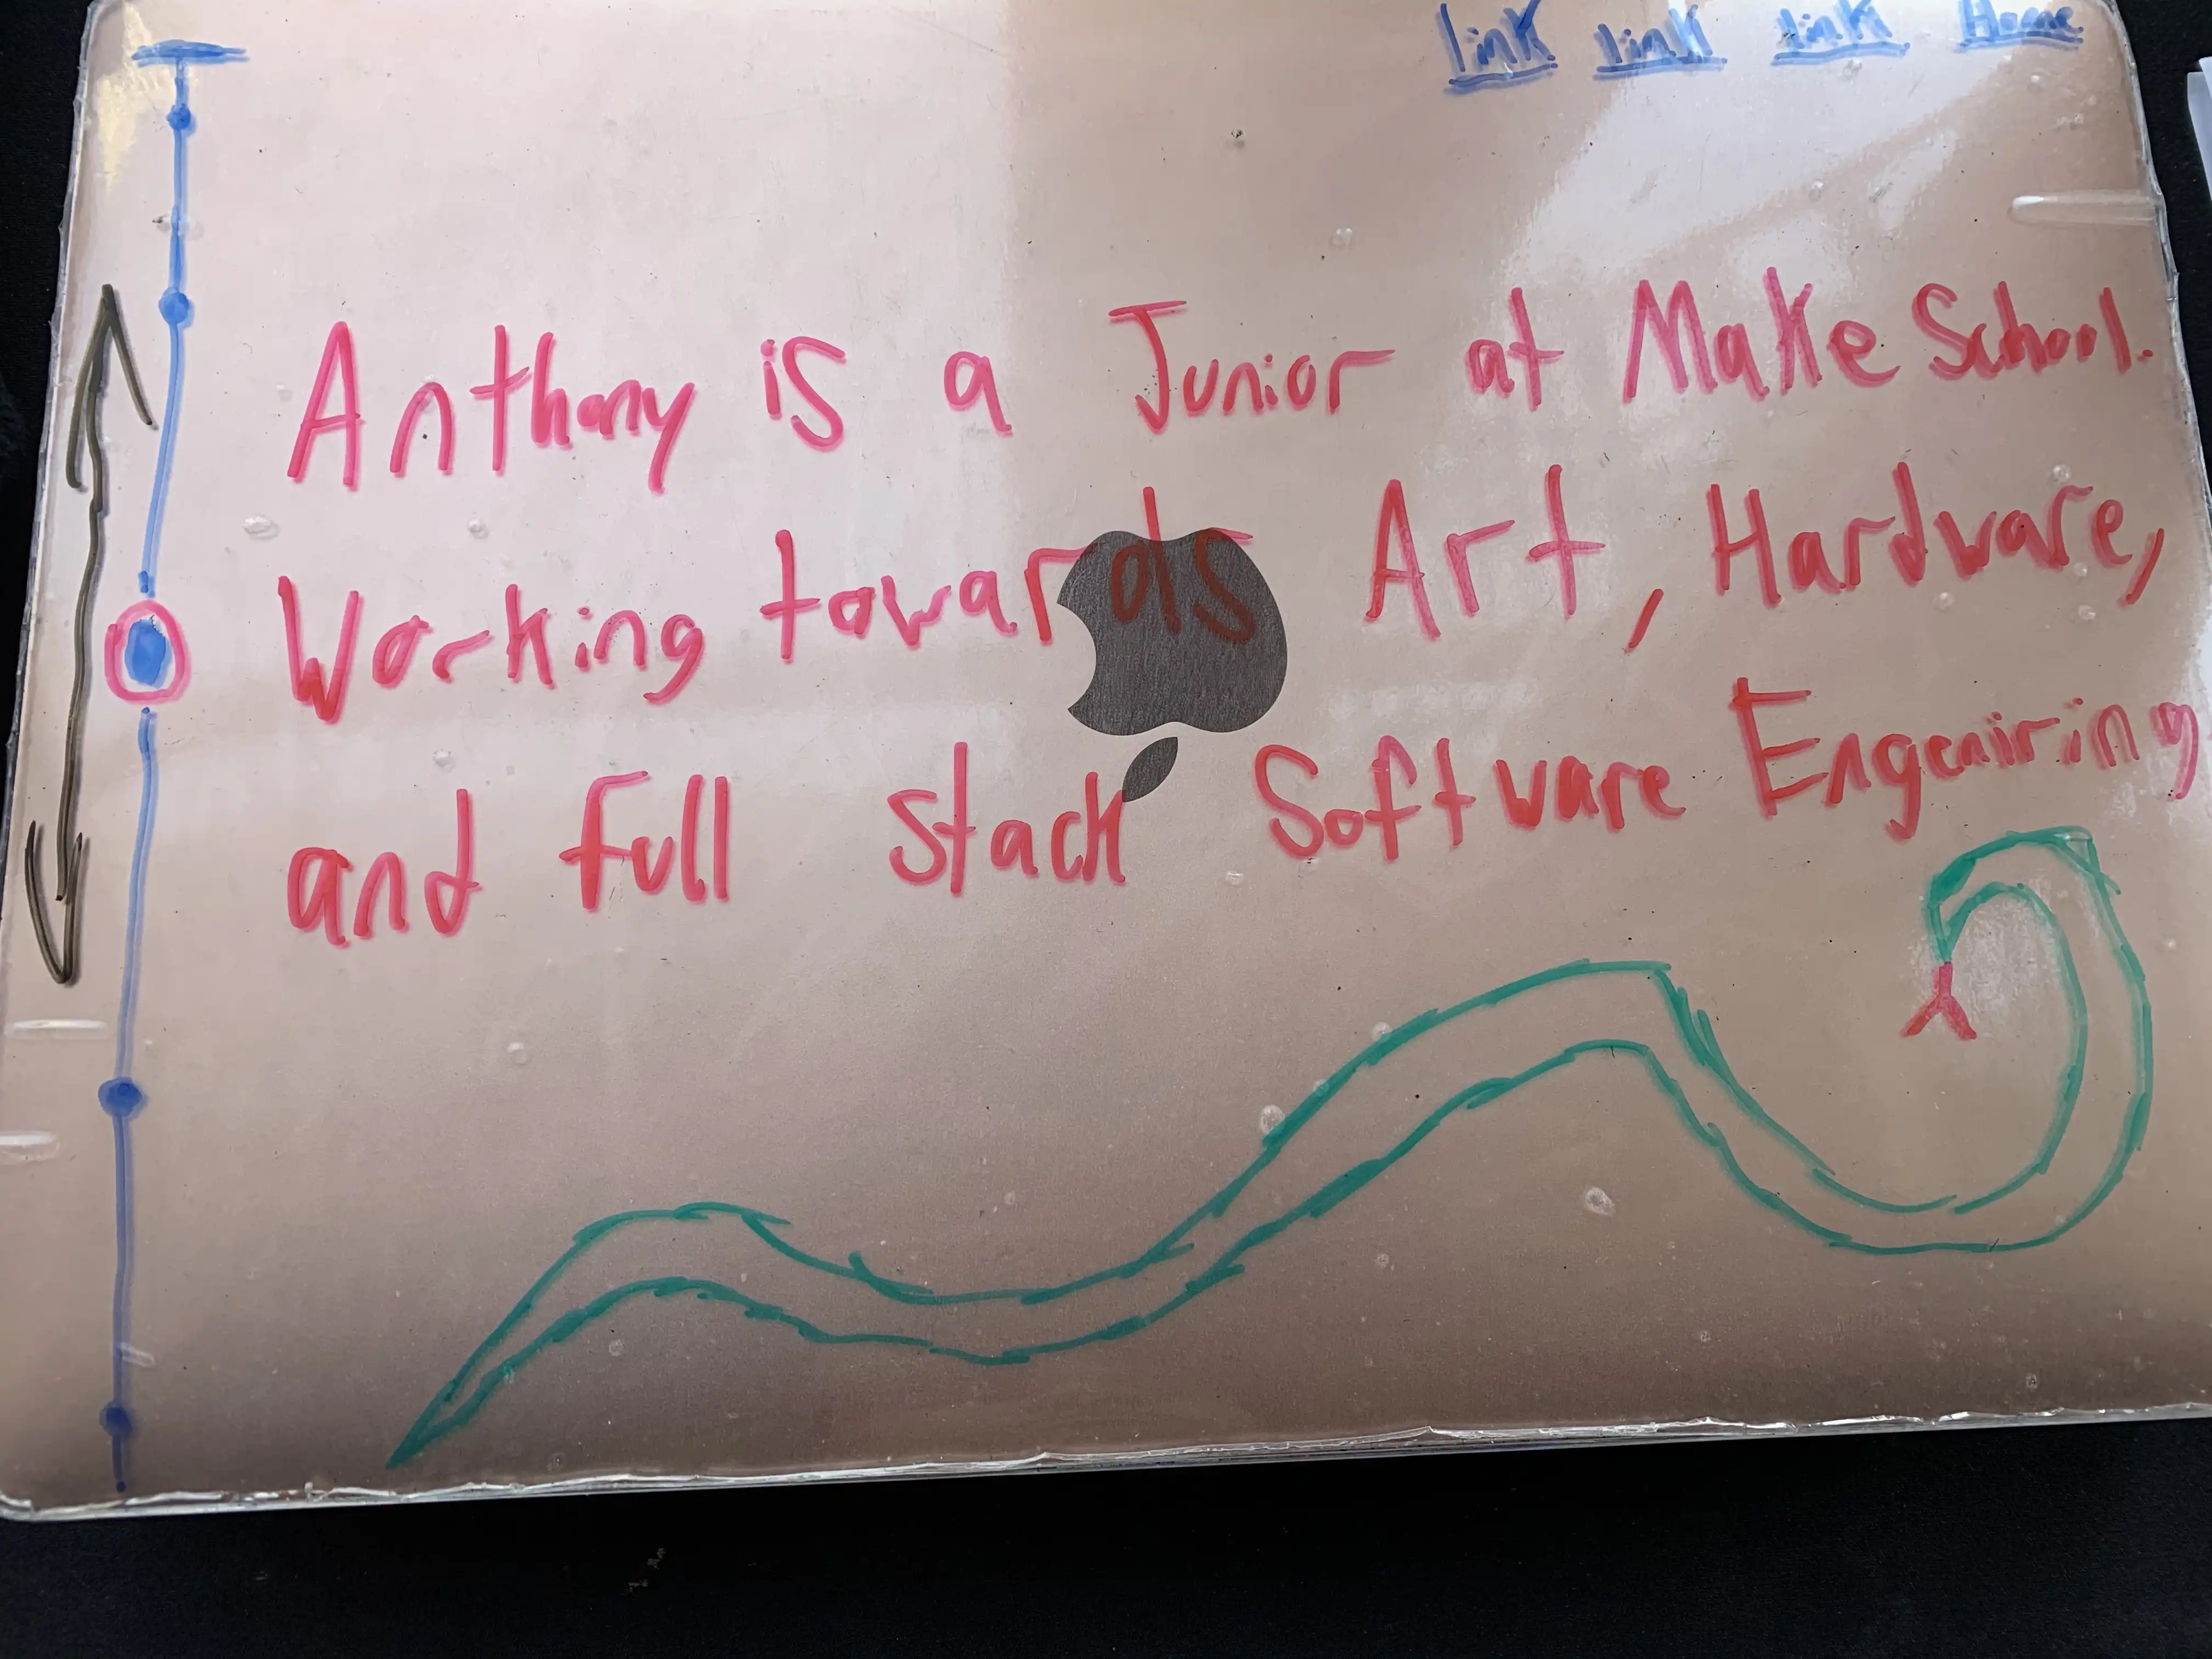 link link link Home
Anthony is a Junior at Make School.
Working towards Art, Hardware,
and full stack Software Engeniiring